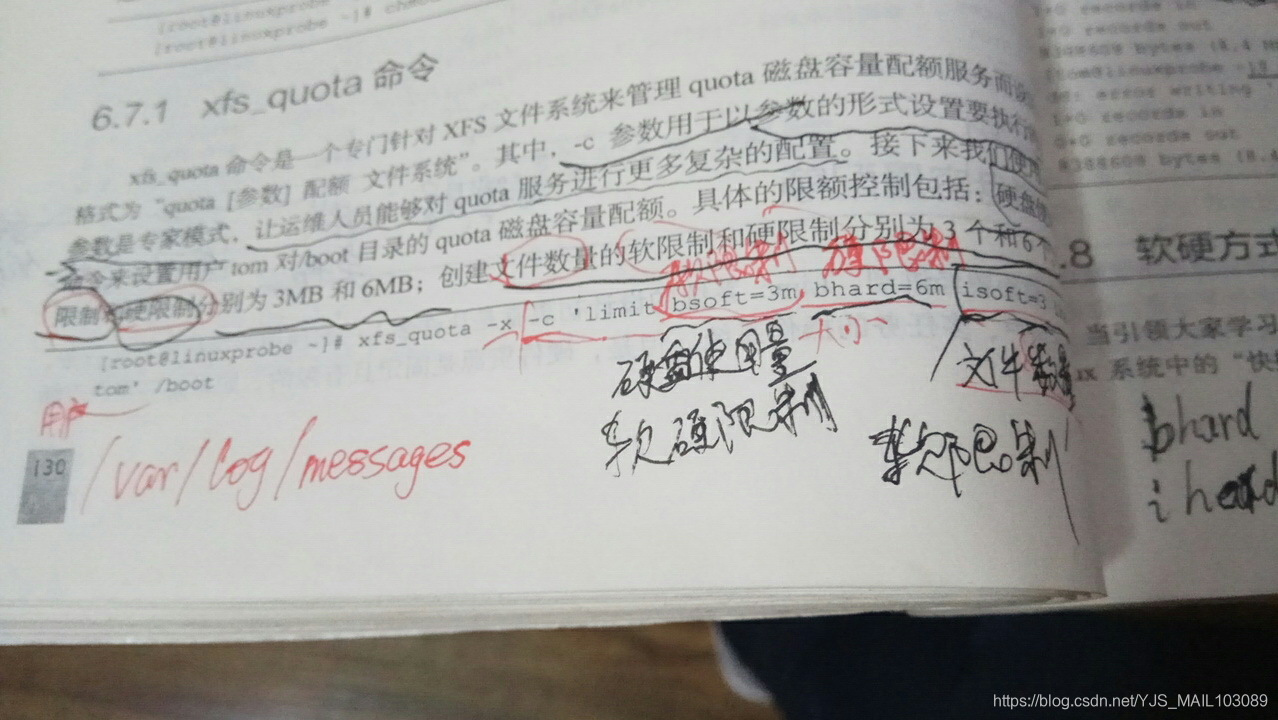 [root@linuxprobe ~]#
[root@linuxprobe ~]# che
6.7.1 xfs_quota 命令
xfs_quota 命令是一个专门针对 XFS 文件系统来管理 quota 磁盘容量配额服务而设
格式为“quota [参数] 配额 文件系统”。其中,-c 参数用于以参数的形式设置要执行
参数是专家模式,让运维人员能够对 quota 服务进行更多复杂的配置。接下来我们使用
命令来设置用户 tom 对/boot 目录的 quota 磁盘容量配额。具体的限额控制包括:硬盘使
限制和硬限制分别为 3MB 和 6MB;创建文件数量的软限制和硬限制分别为 3 个和 6 个
软限制 硬限制
[root@linuxprobe ~]# xfs_quota -x -c 'limit bsoft=3m bhard=6m isoft=3
tom' /boot
用户
大小
硬盘使用量
软硬限制
文件数量
软限制
/var/log/messages
130
records in
records out
bytes
error writing '
1+0 records in
records out
8388608 bytes (8.
.8 软硬方式
当引领大家学习
系统中的“快
bhard
ihard
https://blog.csdn.net/YJS_MAIL103089